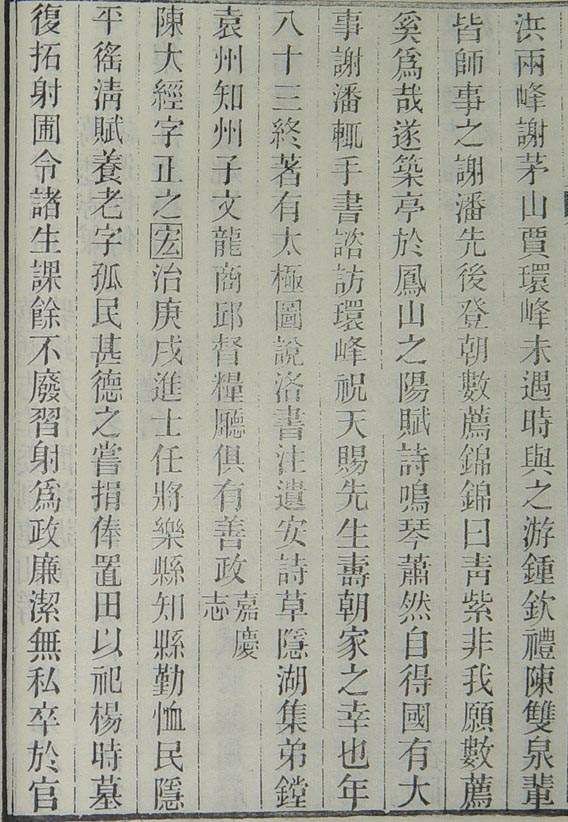 洪兩峰謝茅山賈環峰未遇時與之游鍾欽禮陳雙泉輩
皆師事之謝潘先後登朝數薦錦錦曰靑紫非我願數薦
奚爲哉遂築亭於鳳山之陽賦詩鳴琴蕭然自得國有大
事謝潘輒手書諮訪環峰祝天賜先生壽朝家之幸也年
八十三終著有太極圖說洛書注遺安詩草隱湖集弟鏜
袁州知州子文龍商邱督糧廳俱有善政嘉慶志
陳大經字正之宏治庚戌進士任將樂縣知縣勤恤民隱
平徭淸賦養老字孤民甚德之嘗捐俸置田以祀楊時墓
復拓射圃令諸生課餘不廢習射爲政廉潔無私卒於官